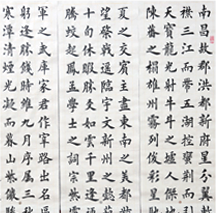 南昌故郡洪都新府星分翼
襟三江而帶五湖控蠻
天寶龍光射牛斗之墟人傑
陳蕃之榻雄州霧列俊彩星
夏之交賓主盡東南之美都
十旬休暇勝友如雲千里逢
騰蛟起鳳孟學士之詞宗紫
軍之武庫家君作宰路出名
躬逢勝餞時維九月序屬三
寒潭清煙光凝而暮山紫儼